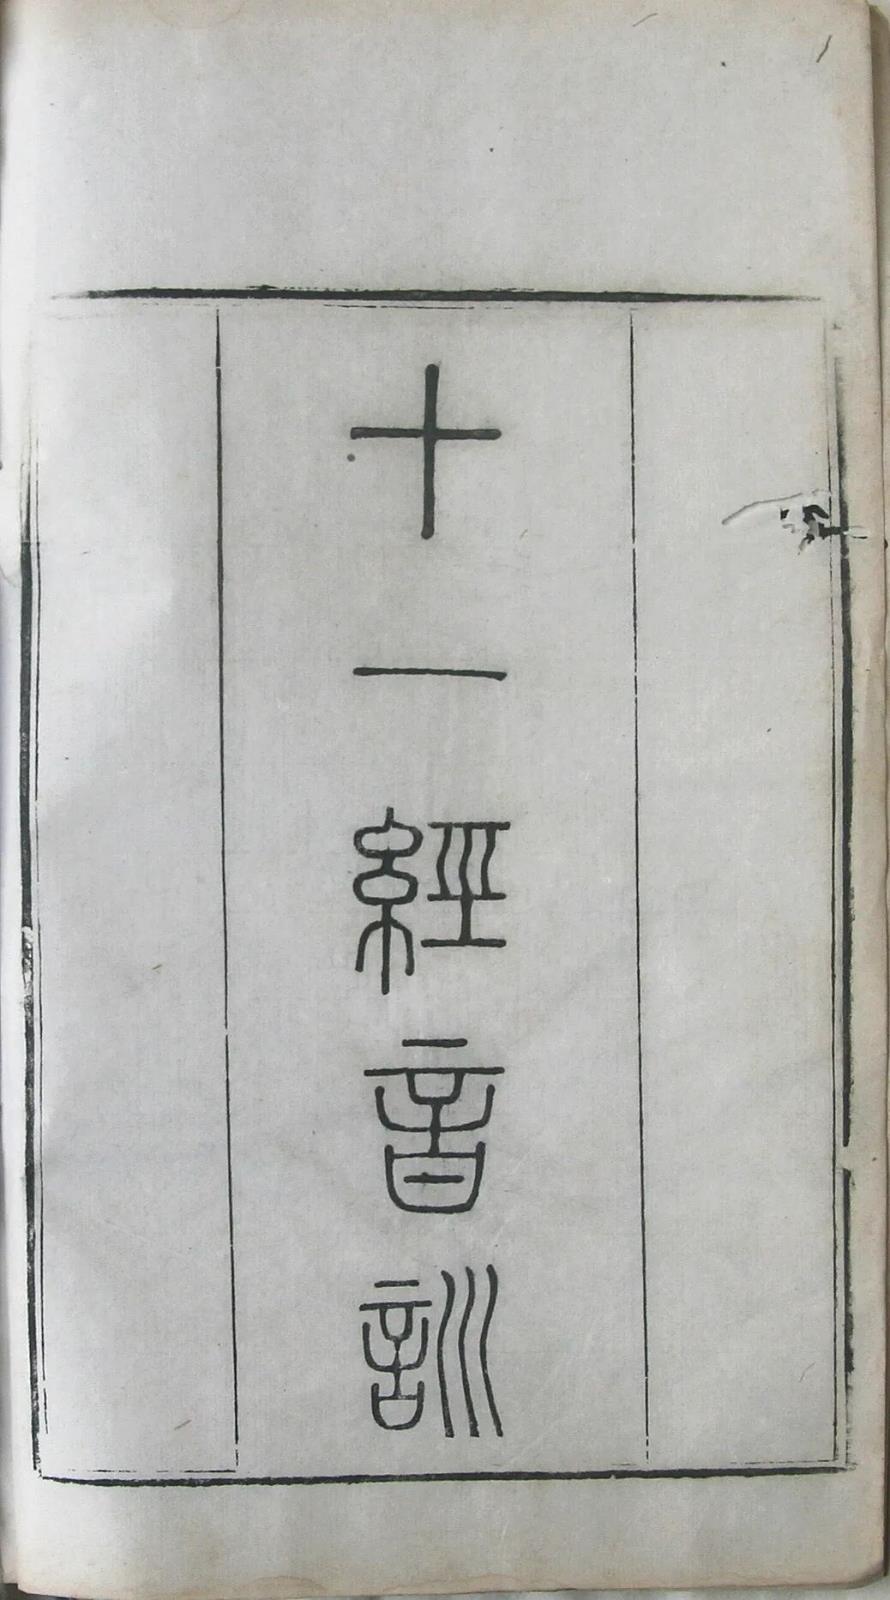 十一經音訓